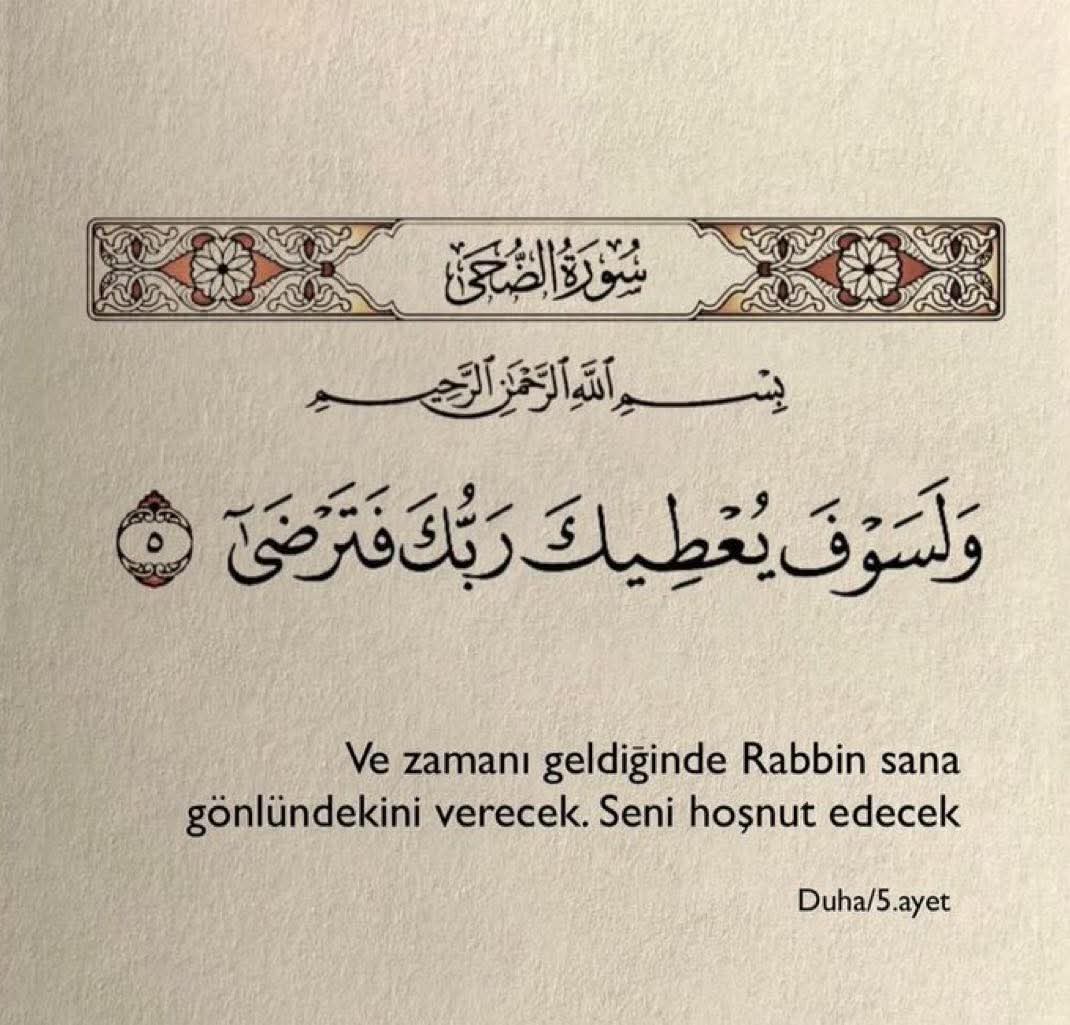 سُورَةُ الضُّحَىٰ
بِسْمِ ٱللَّهِ ٱلرَّحْمَٰنِ ٱلرَّحِيمِ
وَلَسَوْفَ يُعْطِيكَ رَبُّكَ فَتَرْضَىٰٓ ٥
Ve zamanı geldiğinde Rabbin sana
gönlündekini verecek. Seni hoşnut edecek
Duha/5.ayet